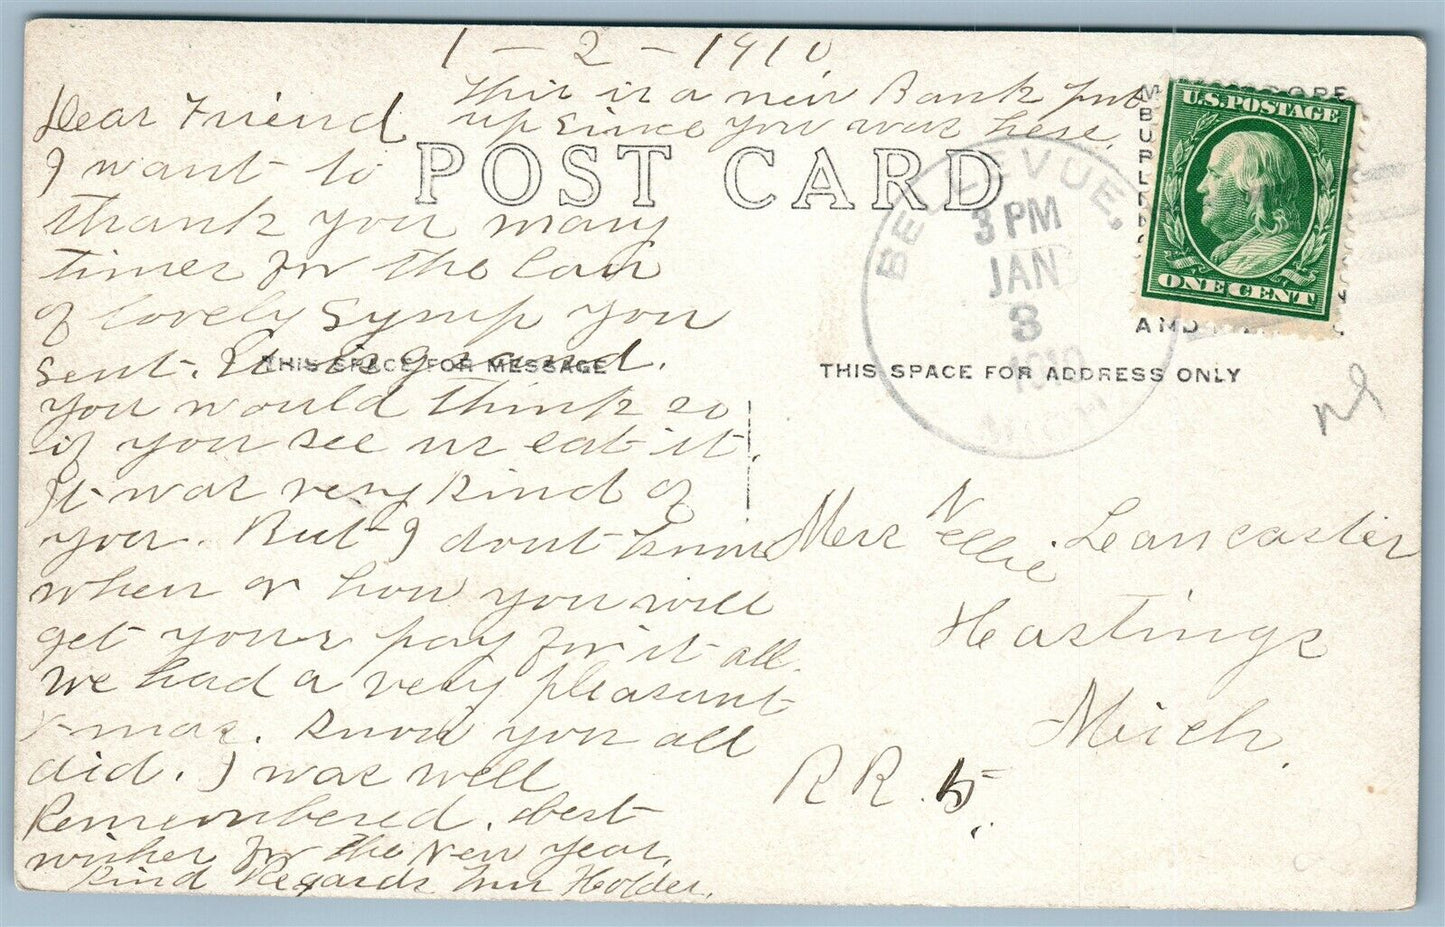 1-2-1910
This is a new Bank put
up since you was here.
Dear Friend
I want to
thank you many
times for the Can
of lovely Symp you
sent. It is grand.
you would think so
if you see us eat it.
It was very kind of
you. But I dont know
when or how you will
get your pay for it all.
we had a very pleasant
X-mas. Know you all
did. I was well
Remembered. Best
wishes for the New Year.
Kind Regards Holder.
POST CARD
THIS SPACE FOR MESSAGE
THIS SPACE FOR ADDRESS ONLY
BELLEVUE,
3 PM
JAN
3
1910
MICH.
U.S.POSTAGE
ONE CENT
AND
Mrs Nellie Leancaster
Hastings
Mich.
RR. 5.